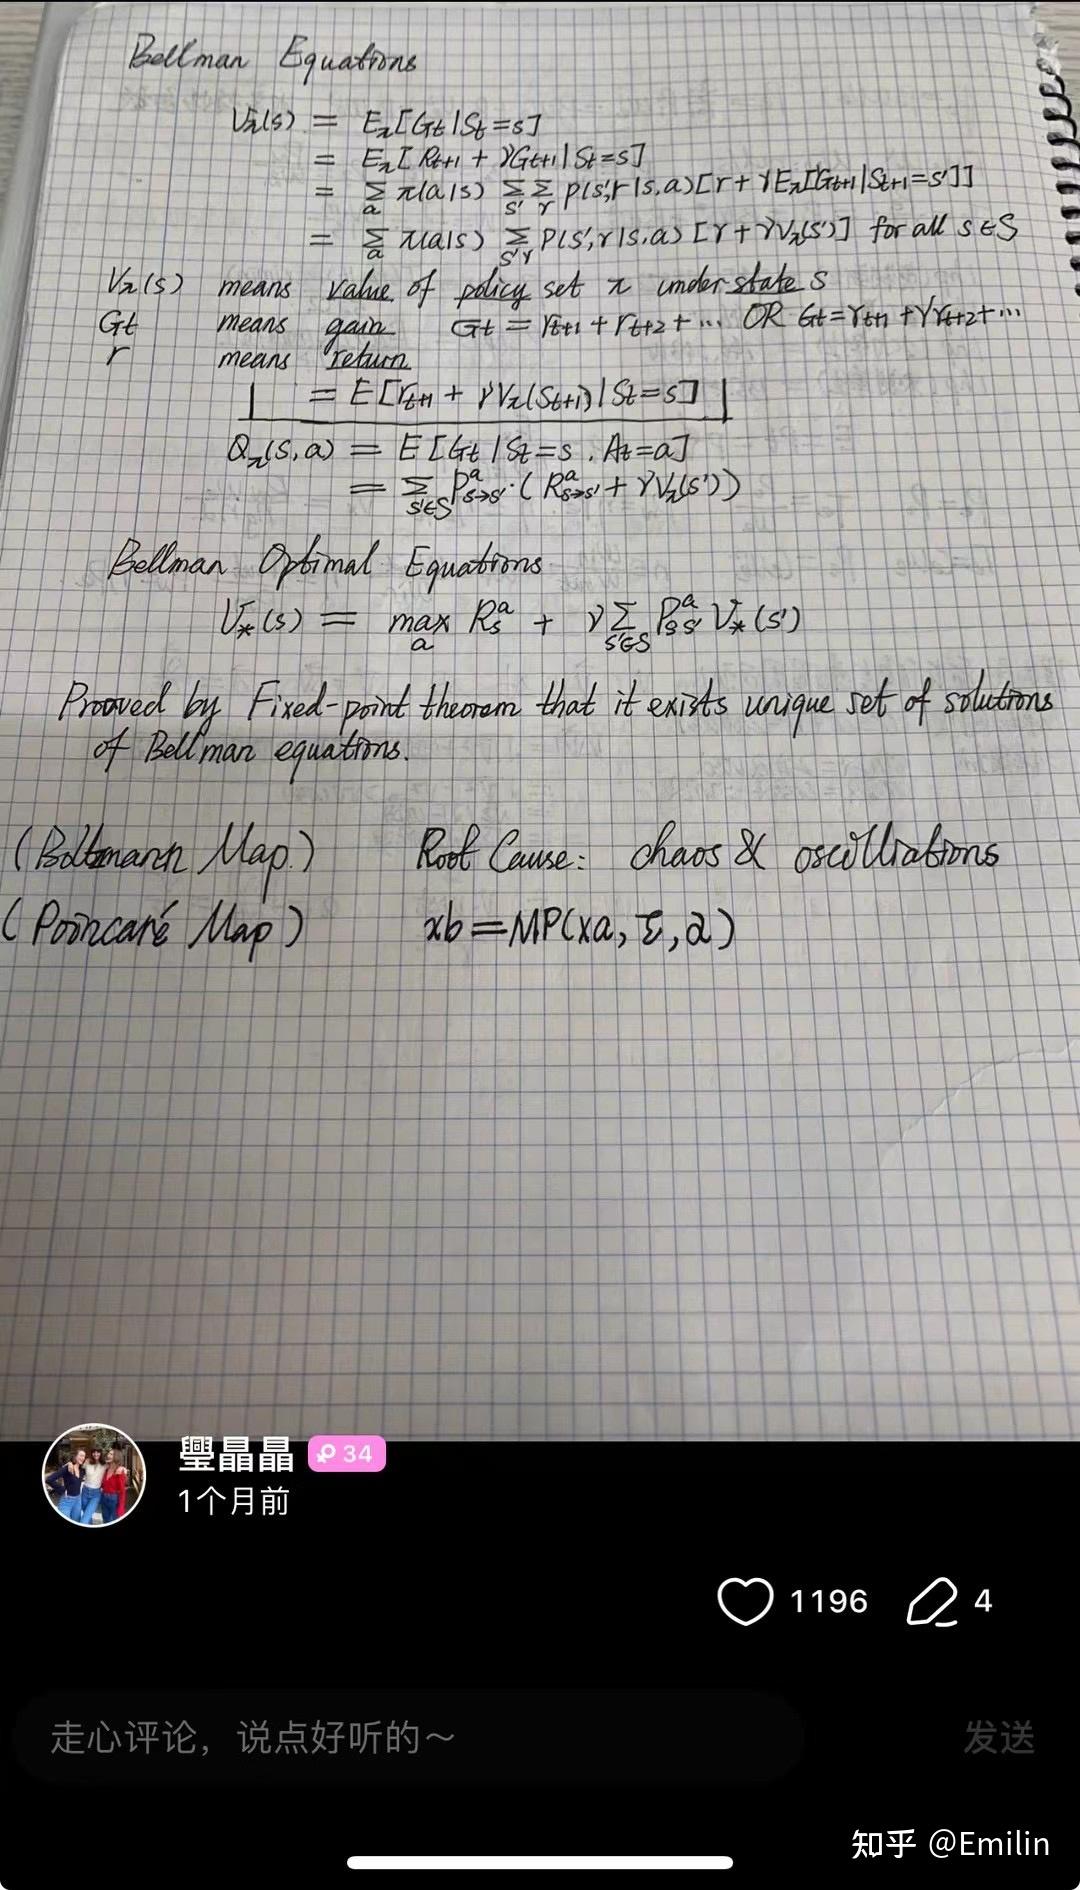 Bellman Equations
Vπ(s) = Eπ[Gt|St=s]
= Eπ[Rt+1 + γGt+1|St=s]
= Σa π(a|s) Σs' Σr p(s',r|s,a)[r+γEπ[Gt+1|St+1=s']]
= Σa π(a|s) Σs'r P(s',r|s,a) [r+γVπ(s')] for all s∈S
Vπ(s) means value of policy set π under state s
Gt means gain Gt = rt+1 + rt+2 + ... OR Gt=rt+1 +γrt+2+...
r means return
= E[rt+1 + γVπ(St+1)|St=s]
Qπ(s,a) = E[Gt|St=s . At=a]
= Σs'∈S Pᵃs→s' · (Rᵃs→s' + γVπ(s'))
Bellman Optimal Equations
V*(s) = maxa Rsᵃ + γ Σs'∈S Pᵃss' V*(s')
Prooved by Fixed-point theorem that it exists unique set of solutions
of Bellman equations.
(Boltzmann Map.) Root Cause: chaos &
(Poincaré Map) xb=MP(xa, Σ,
璺晶晶 34
1个月前
1196 4
走心评论，说点好听的～ 发送
知乎 @Emilin